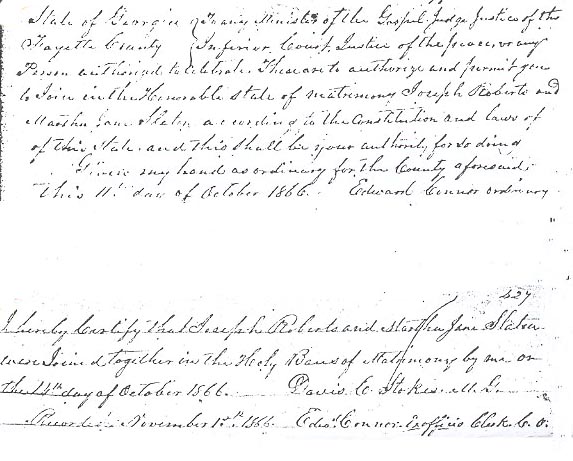 State of Georgia } To any Minister of the Gospel, Judge Justice of the
Fayette County } Inferior Court, Justice of the peace, or any
Person authorized to celebrate. These are to authorize and permit you
to Join in the Honorable state of matrimony Joseph Roberts and
Martha Jane Slaten according to the Constitution and laws of
of this State. and this shall be your authority for so doing
Given my hand as ordinary for the County aforesaid,
This 11th day of October 1866. Edward Connor ordinary
427
I hereby Certify that Joseph Roberts and Martha Jane Slaten
were Joined together in the Holy Bans of Matrimony by me on
the 14th day of October 1866. Davis C. Stokes. M.G.
Recorded November 1st 1866. Edwd. Connor. Exofficio Clerk C. O.